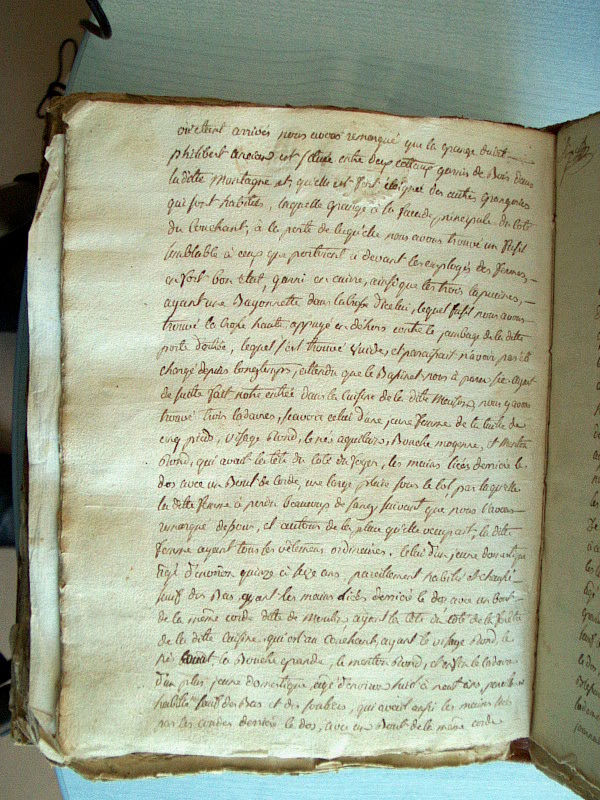 où étant arrivés nous avons remarqué que la grange dudit
philibert est située entre deux coteaux garnis de Bois dans
la ditte Montagne et qu'elle est fort éloignée des autres grangeries
qui sont habitées, laquelle grange à la facade principale du coté
du Couchant, à la porte de laquelle nous avons trouvé un fusil
semblable à ceux que portoient cy devant les employés des fermes,
en fort bon etat, garni en cuivre, ainsi que les trois capucines,
ayant une Bayonnette dans la d'icelui, lequel fusil nous avons
trouvé la crosse haute, appuyé en dehors contre le jambage de la ditte
porte d'entrée, lequel s'est trouvé vuide, et paraissait n'avoir pas été
chargé depuis longtemps, attendu que le Bassinet nous à paru sec. ayant
de suite fait notre entrée dans la Cuisine de la ditte Maison, nous y avons
trouvé trois cadavres, scavoir celui d'une jeune femme de la taille de
cinq pieds, visage Rond, le nés aquilain, Bouche moyenne, et Menton
Rond, qui avait la tête du coté du foyer, les mains liées derrière le
dos avec un Bout de corde, une large plaie sous le col par laquelle
la ditte femme à perdu beaucoup de sang suivant que nous l'avons
remarqué dessous, et autour de la place qu'elle occupait; la ditte
femme ayant tous ses vêtemens ordinaires. Celui d'un jeune domestique
agé d'environ quinze à seize ans, pareillement habillé et chaussé
sauf des Bas, ayant les mains liées derrière le dos avec un bout
de la même corde ayant la tête du coté de la fenêtre
de la ditte cuisine qui est au couchant, ayant le visage Rond, le
né la Bouche grande, le menton Rond, et enfin le cadavre
d'un plus jeune domestique, agé d'environ huit à neuf ans,
habillé sauf des Bas et des souliers, qui avait aussi les mains liées
par les cordes derrière le dos, avec un Bout de la même corde